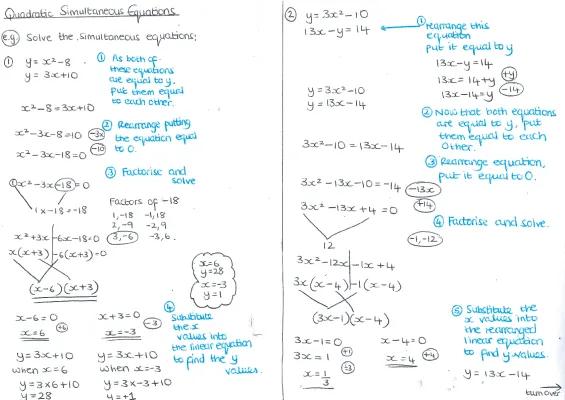 Quadratic Simultaneous Equations
e.g) Solve the simultaneous equations;
① y = x²-8
y = 3x+10
① As both of
these equations
are equal to y,
put them equal
to each other.
x²-8 = 3x+10
x²-3x-8 = 10 (-3x)
x²-3x-18 = 0 (-10)
② Rearrange putting
the equation equal
to 0.
③ Factorise and
solve
①x²-3x(-18) = 0
1x-18 = -18
Factors of -18
1,-18 -1,18
2,-9 -2,9
3,-6 -3,6.
x²+3x|-6x-18=0
x(x+3)|-6(x+3)=0
(x-6)(x+3)
x=6
y=28
x=-3
y=1
x-6=0 x+3=0
x=6 (+6) x=-3 (-3)
④
Substitute
the x
values into
the linear equation
to find the y
values.
y=3x+10 y=3x+10
when x=6 when x=-3
y=3x6+10 y=3x-3+10
y=28 y=+1
② y=3x²-10
13x-y=14
① Rearrange this
equation
put it equal to y
13x-y=14
13x=14+y (+y)
13x-14=y (-14)
y=3x²-10
y=13x-14
② Now that both equations
are equal to y, put
them equal to each
other.
3x²-10=13x-14
③ Rearrange equation,
put it equal to 0.
3x²-13x-10=-14 (-13x)
3x²-13x+4=0 (+14)
④ Factorise and solve.
12
(-1,-12)
3x²-12x|-1x+4
3x(x-4)|-1(x-4)
(3x-1)(x-4)
3x-1=0 x-4=0
3x=1 (+1) x=4 (+4)
x=1/3 (÷3)
⑤ Substitute the
x values into
the rearranged
linear equation
to find y values.
y=13x-14
turn over